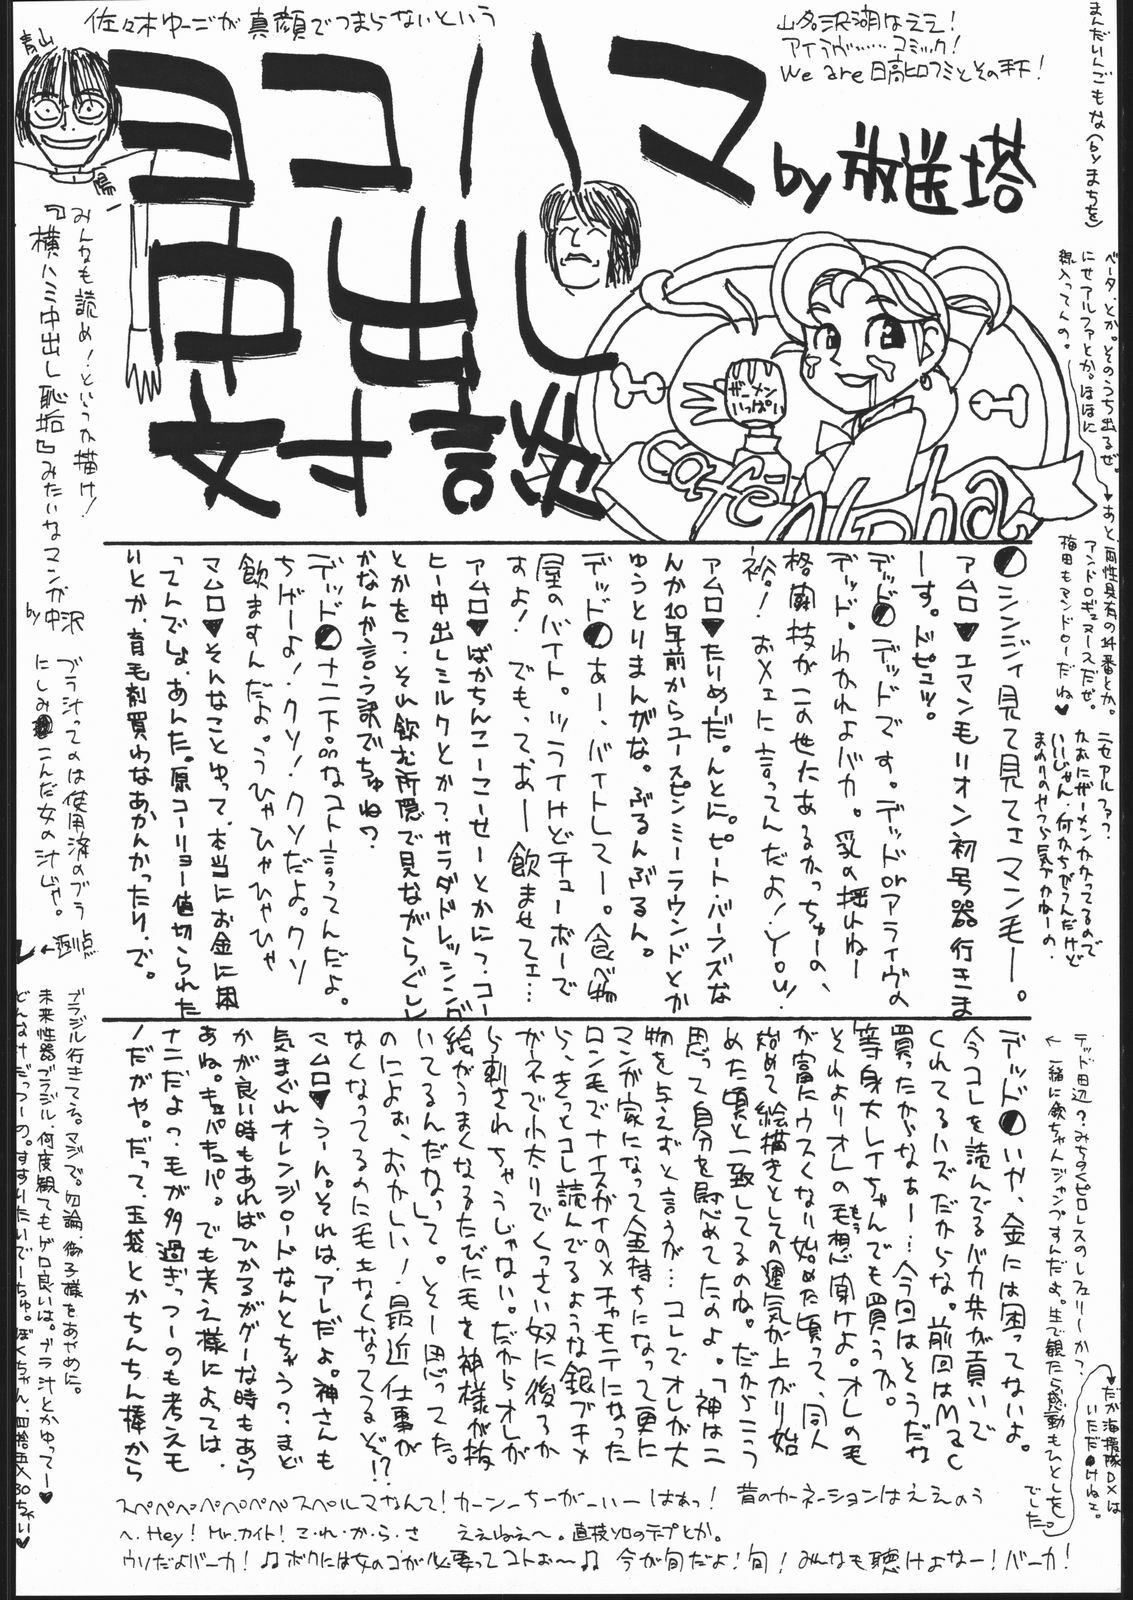 佐々木ゆーごが真顔でつまらないという
山名沢湖はええ!
アイラヴ……コミック!
We are 日高ヒロフミとその手下!
まんだいんごもな(byまちを)
青山
陽一
ヨコハマ
中出し
対談
by放送塔
ザーメン
いっぱい
cafe alpha
みんなも読め!というか描け!
『横ハミ中出し恥垢』みたいなマンガ
by中沢
ブラ汁ってのは使用済のブラ
にしみこんだ女の汁じゃ。
ベータ、とか。そのうち出るぜ。
にせアルファとか。ほほに
線入ってんの。
あと、両性具有の14番とか。
アンドロギュヌースだぜ。
梅田もアンドローだね♥
ニセアルファ?
かおにザーメンかかってるので
いいじゃん。何かちがうんだけど
まわりのやつら気づかねーの。
シンジィ見て見てェマン毛ー。
アムロ▼エマン毛リオン初号器行きま
ーす。ドピュッ。
デッド デッドです。デッドorアライヴの
デッド。わかれよバカ。乳の揺れねー
格闘技がこの世たあるかっちゅーの、
裕!おメェに言ってんだよ!You!
アムロ▼たいめーだ。んとに。ピート・バーンズな
んか10年前からユースピンミーラウンドとか
ゆうとりまんがな。ぶるんぶるん。
デッド あー、バイトしてー。食べ物
屋のバイト。ツライけどチューボーで
すよ!でもっておー飲ませてェ…
アムロ▼ばかちんこーこーせーとかにっ、コー
ヒー中出しミルクとかっ、サラダドレッシング
とかをっ、それ飲む所隠で見ながらぐしし
かなんか言う訳でちゅね?
デッド ナニ下品なコト言ってんだよ。
ちげーよ!クソ!クソだよ。クソ
飲ますんだよ。うひゃひゃひゃひゃ
マムロ▼そんなことゆって、本当にお金に困
ってんでしょ、あんた。原コーリョー値切られた
いとか、育毛剤買わなあかんかったり、で。
デッド いや、金には困ってないよ。
今コレを読んでるバカ共が貢いで
くれてるハズだからな。前回はMac
買ったからなぁー…今回はそうだな
等身大レイちゃんでも買うか。
それよりオレの毛想聞けよ。オレの毛
が富にウスくなり始めた頃って、同人
始めて絵描きとしての運気が上がり始
めた頃と一致してるのね。だからこう
思って自分を慰めてたのよ。「神は二
物を与えず」と言うが…コレでオレが大
マンガ家になって金持ちになって更に
ロン毛でナイスガイのメチャモテになった
ら、きっとコレ読んでるような銀ブチメ
ガネで小太りでくっさい奴に後ろか
ら刺されちゃうじゃない。だからオレが
絵がうまくなるたびに毛を神様が抜
いてるんだなって。そー思ってた。
のによぉ、おかしい!最近仕事が
なくなってるのに毛もなくなってるぞ!?
マムロ▼うーん。それは、アレだよ。神さんも
気まぐれオレンジロードなんとちゃう?まど
かが良い時もあればひかるがグーな時もあら
あね。キュパキュパ。でも考え様によっては、
ナニだよっ、毛が多過ぎっつーのも考えモ
ノだがや。だって、玉袋とかちんちん棒から
ブラジル行きてえ。マジで。勿論、御子様をあやめに。
未来性器ブラジル、何度観てもゲロ良いは。ブラ汁とかゆってー♥
どんなけだっつーの。すすりたいでーちゅ。ぼくちゃん、四拾伍×30ちゃい♥
デッド田辺?みちのくピロレスのレフェリーか?
←一緒に飲ちゃんジャンプすんだよ。生で観たら感動もひとしを
でした。
だが海援隊DXは
いただけねェ。
スペペペペペペペスペルマなんて!カーンーちーがーいーはあっ!昔のカーネーションはええのう
へ、Hey!Mr.カイト!こ・れ・か・ら・さ ええねえ~。直枝ソロのテープとか。
ウソだよバーカ!♫ボクには女のコがル必要ってコトぉ~♫今が旬だよ!旬!みんなも聴けよなー!バーカ!